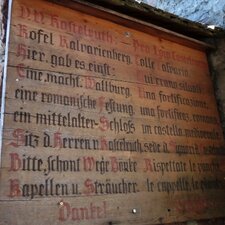 Alt Kastelruth: Pro Loco Castelrotto
Kofel Kalvarienberg. Colle Calvario.
Hier gab es einst: Qui erano situati:
Eine mächt. Wallburg, Una fortificazione,
eine romanische Festung, una fortificaz. romana
ein mittelalter-Schloß un castello medioevale
Sitz d. Herren v. Kastelruth. sede d. signori
Bitte, schont Wege Bänke Rispettate le panche,
Kapellen u. Sträucher. le cappelle, le piante
Danke!